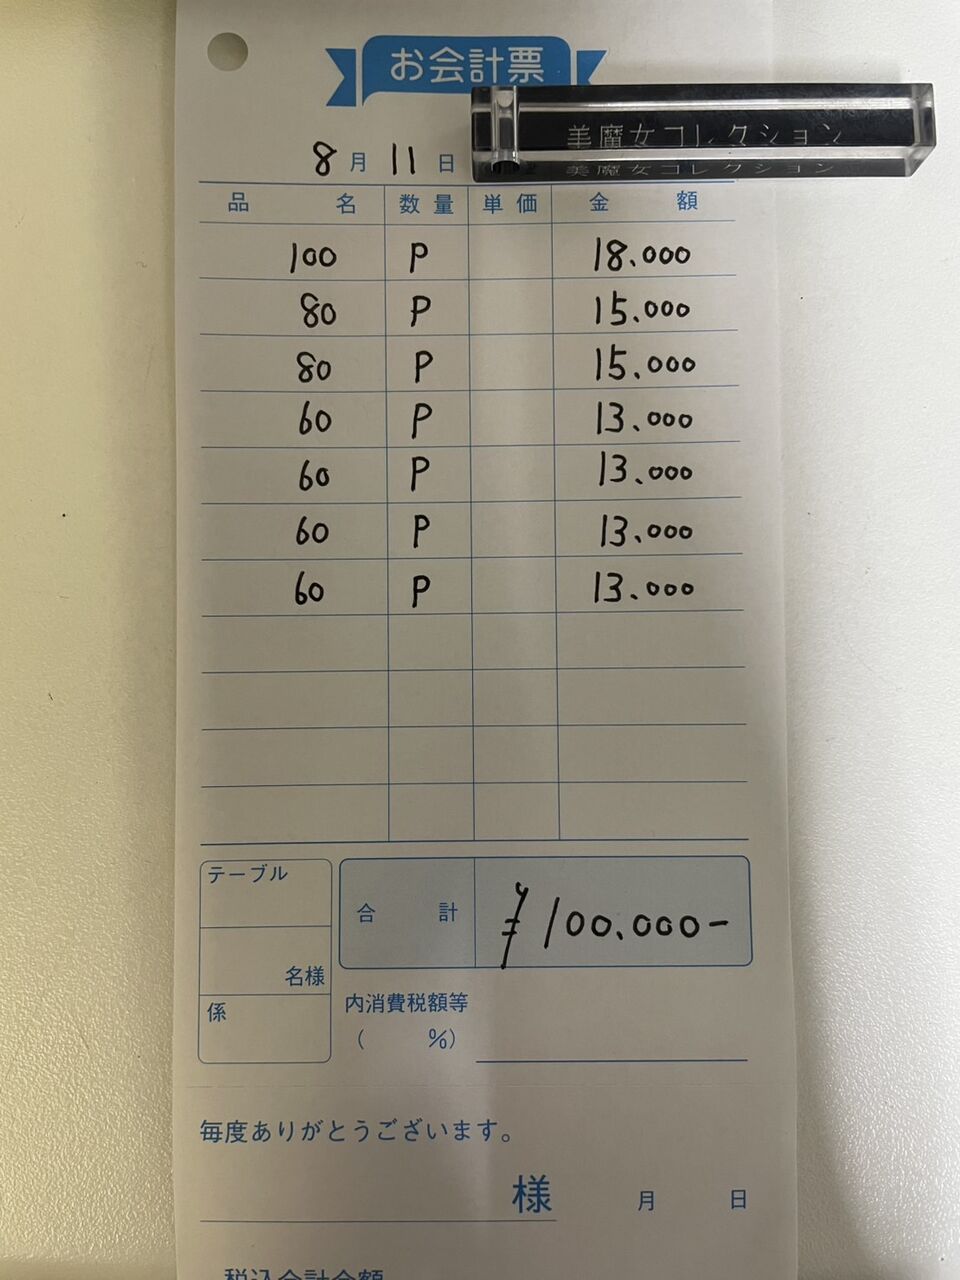 お会計票
美魔女コレクション
美魔女コレクション
8月11日
品名 数量 単価 金額
100 P 18.000
80 P 15.000
80 P 15.000
60 P 13.000
60 P 13.000
60 P 13.000
60 P 13.000
テーブル
名様
係
合計 ¥100.000-
内消費税額等
( %)
毎度ありがとうございます。
様 月 日
税込合計金額